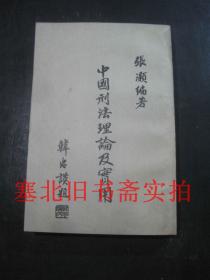 張灝編著
中國刑法理論及實用
韓忠謨題
塞北旧书斋实拍